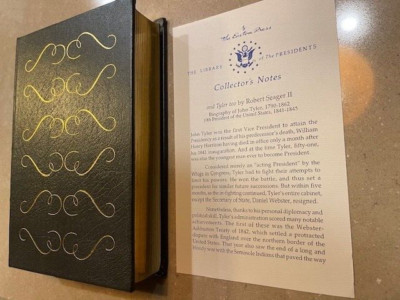 The Easton Press
THE LIBRARY of The PRESIDENTS
Collector's Notes
and Tyler too by Robert Seager II
Biography of John Tyler, 1790-1862
10th President of the United States, 1841-1845
John Tyler was the first Vice President to attain the
Presidency as a result of his predecessor's death, William
Henry Harrison having died in office only a month after
his 1841 inauguration. And at the time Tyler, fifty-one,
was also the youngest man ever to become President.
Considered merely an "acting President" by the
Whigs in Congress, Tyler had to fight their attempts to
limit his powers. He won the battle, and thus set a
precedent for similar future successions. But within five
months, as the in-fighting continued, Tyler's entire cabinet,
except the Secretary of State, Daniel Webster, resigned.
Nonetheless, thanks to his personal diplomacy and
Tyler's administration scored many notable
achievements. The first of these was the Webster-
Ashburton Treaty of 1842, which settled a protracted
dispute with England over the northern border of the
United States. That year also saw the end of a long and
bloody war with the Seminole Indians that paved the way